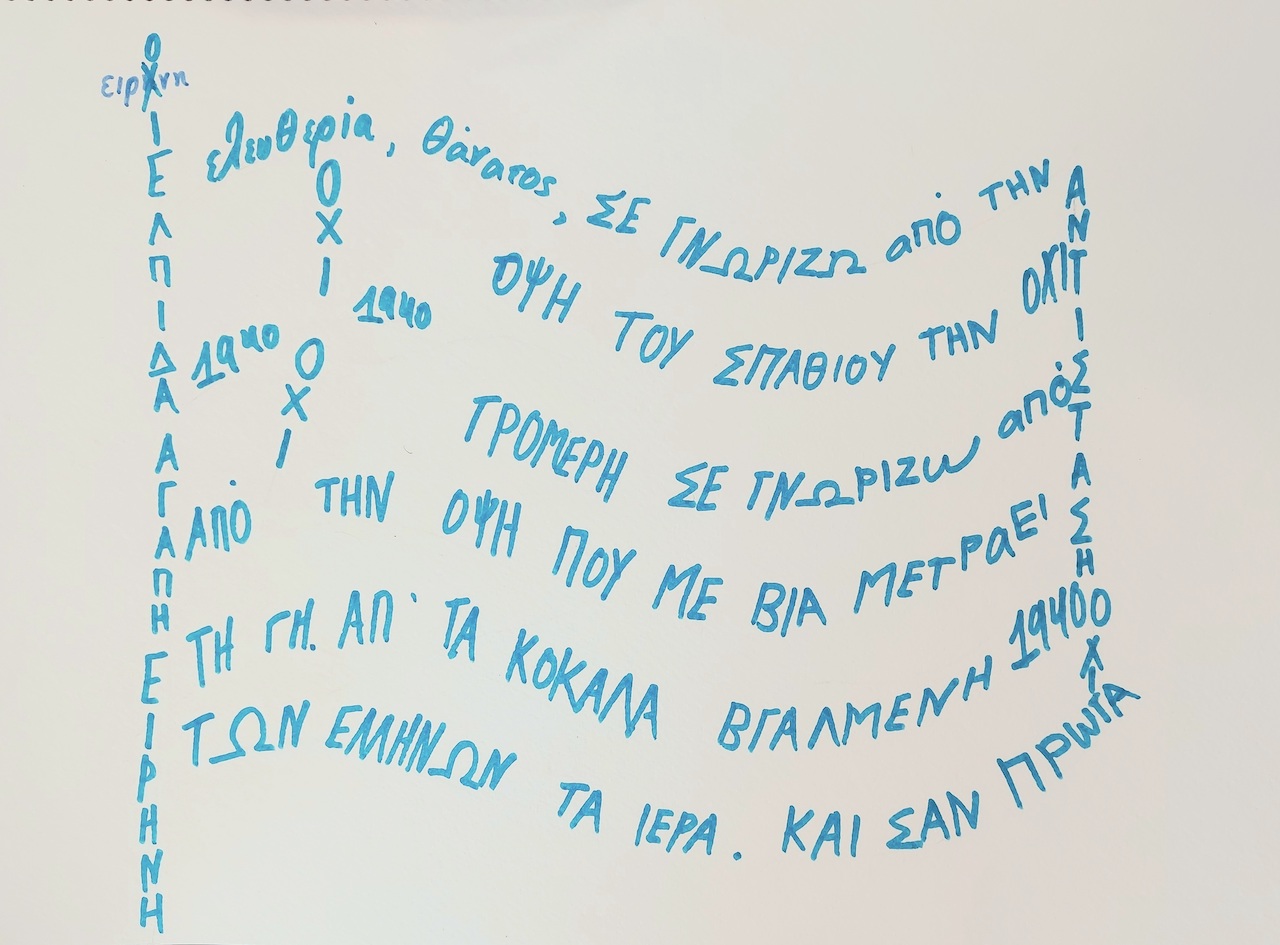 ΟΧΙ ΕΛΠΙΔΑ ΑΓΑΠΗ ΕΙΡΗΝΗ
ειρήνη
ελευθερία, θάνατος, ΣΕ ΓΝΩΡΙΖΩ από ΤΗΝ
ΟΧΙ
1940
ΟΨΗ ΤΟΥ ΣΠΑΘΙΟΥ ΤΗΝ ΟΧΙ
1940
ΟΧΙ
ΤΡΟΜΕΡΗ ΣΕ ΓΝΩΡΙΖω από
ΑΠΌ ΤΗΝ ΟΨΗ ΠΟΥ ΜΕ ΒΙΑ ΜΕΤΡαΕΙ
ΤΗ ΓΗ. ΑΠ' ΤΑ ΚΟΚΑΛΑ ΒΓΑΛΜΕΝΗ 1940
ΤΩΝ ΕΛΛΗΝΩΝ ΤΑ ΙΕΡΑ. ΚΑΙ ΣΑΝ ΠΡωΤΑ
ΑΝΤΙΣΤΑΣΗ ΟΧΙ